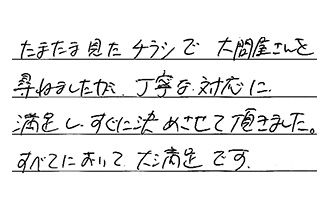 たまたま見たチラシで 大問屋さんを
尋ねましたが、丁寧な対応に
満足し、すぐに決めさせて頂きました。
すべてにおいて大満足です。